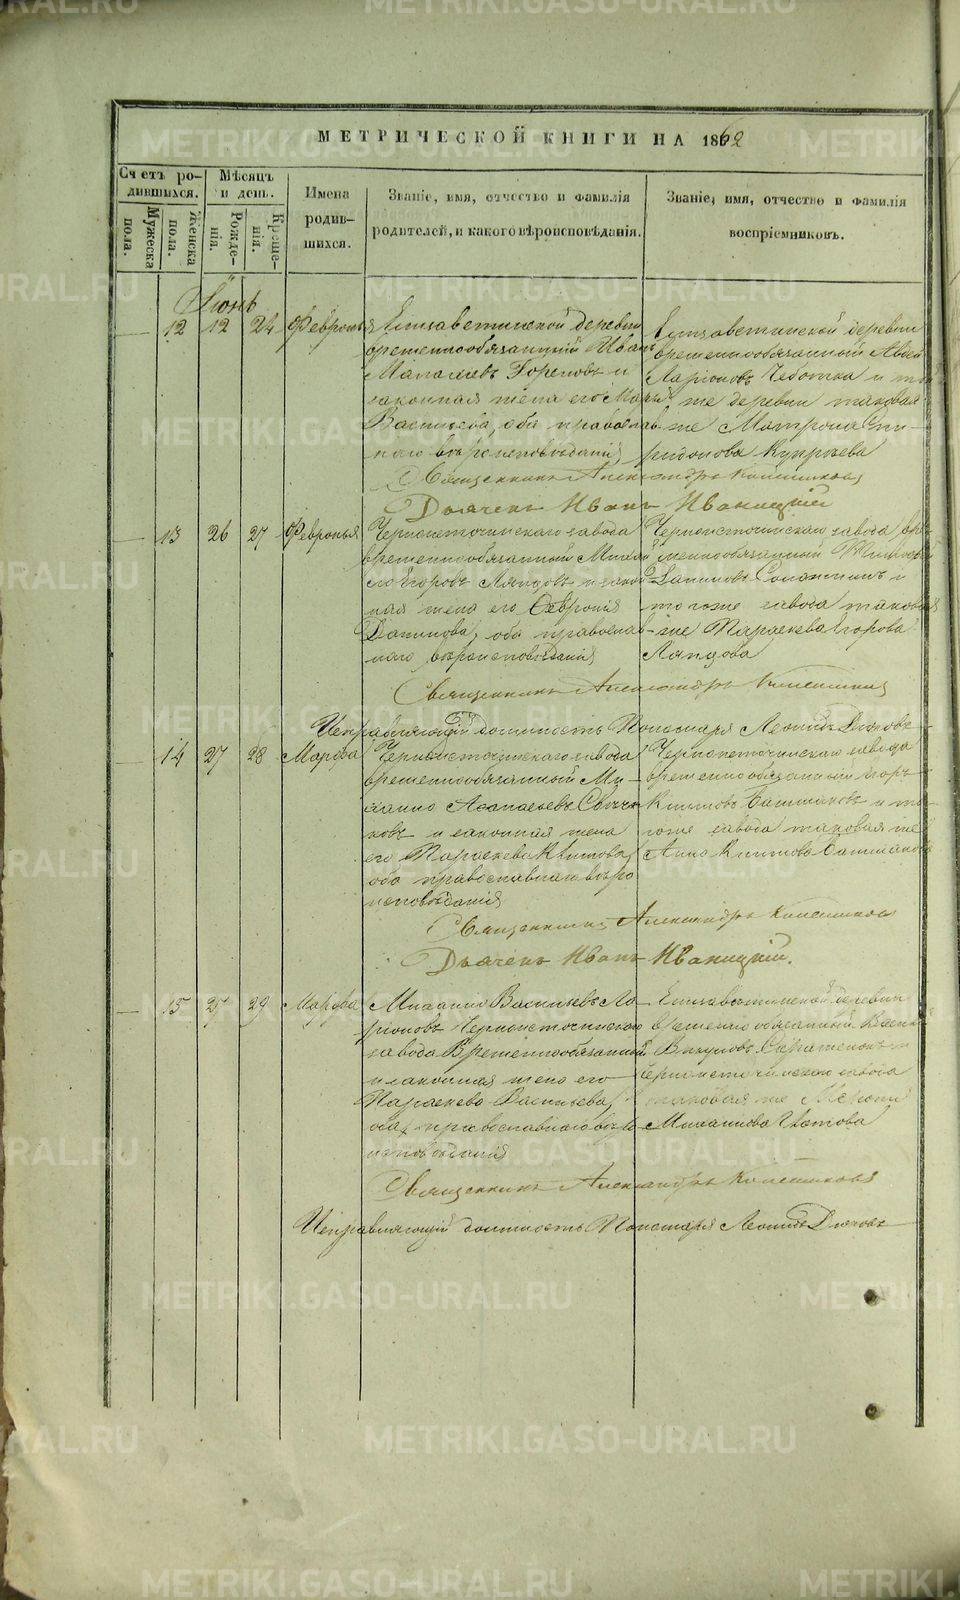 МЕТРИЧЕСКОЙ КНИГИ НА 1862
Счетъ ро-
дившихся.
Мужеска
пола.
Женска
пола.
Мѣсяцъ
и день.
Рожде-
нія.
Креще-
нія.
Имена
родив-
шихся.
Званіе, имя, отчество и фамилія
родителей, и какого вѣроисповѣданія.
Званіе, имя, отчество и фамилія
воспріемниковъ.
Іюнь
12 12 24 Февронья
Елизаветинской деревни
временнообязанный Иванъ
и
законная жена его Марья
Васильева, оба православ-
наго вѣроисповѣданія
Елизаветинской деревни
временнообязанной
Ларіоновъ и той
же деревни таковая
же Матрона Спи-
ридонова
Священникъ Александръ
Дьячекъ Иванъ Иваницкій
13 26 27 Февронья
Черноисточинскаго завода
временнообязанный Миха-
ло Егоровъ и закон
ная жена его Февронія
Данилова, оба православ-
наго вѣроисповѣданія
Черноисточинскаго завода вре-
меннообязанный
Даниловъ и
тогоже завода таковая
же Параскева Егорова
Священникъ Александръ
Исправляющій должность Пономаря Леонидъ
14 27 28 Марфа
Черноисточинскаго завода
временнообязанный Ми-
хаило
и законная жена
его Параскева Климова,
оба православнаго вѣро
исповѣданія
Черноисточинскаго завода
временнообязанный Егоръ
Климовъ Башмаковъ и то-
гоже завода таковая же
Анна Климова Башмакова
Священникъ Александръ
Дьячекъ Иванъ Иваницкій.
15 27 29 Марфа
Михаило Васильевъ Ла-
ріоновъ Черноисточинскаго
завода Временнообязанный
и законная жена его
Параскева Васильева,
оба православнаго вѣро-
исповѣданія
Елизаветинской деревни
временно обязанный Василій
Викуловъ и
Черноисточинскаго завода
таковая же
Михаилова
Священникъ Александръ
Исправляющій должность Пономаря Леонидъ
METRIKI.GASO-URAL.RU